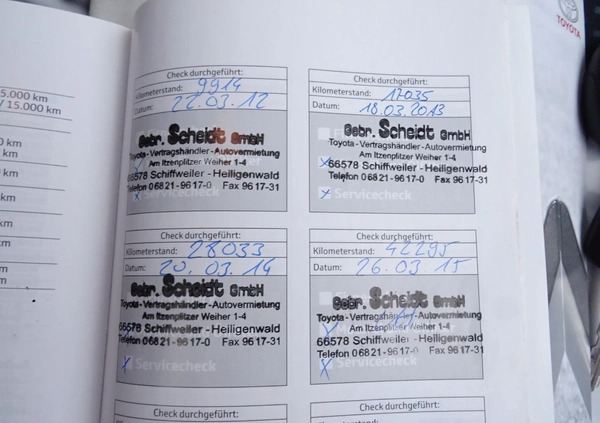 TOYOTA
5.000 km
/ 15.000 km
0 km
km
km
km
km
km
km
Check durchgeführt:
Kilometerstand: 9914
Datum: 22.03.12
Gebr. Scheidt GmbH
Toyota-Vertragshändler-Autovermietung
Am Itzenplitzer Weiher 1-4
66578 Schiffweiler - Heiligenwald
Telefon 06821-9617-0 Fax 9617-31
x Servicecheck
Check durchgeführt:
Kilometerstand: 17035
Datum: 18.03.2013
Gebr. Scheidt GmbH
Toyota-Vertragshändler-Autovermietung
Am Itzenplitzer Weiher 1-4
66578 Schiffweiler - Heiligenwald
Telefon 06821-9617-0 Fax 9617-31
x Servicecheck
Check durchgeführt:
Kilometerstand: 28033
Datum: 20.03.14
Gebr. Scheidt GmbH
Toyota-Vertragshändler-Autovermietung
Am Itzenplitzer Weiher 1-4
66578 Schiffweiler - Heiligenwald
Telefon 06821-9617-0 Fax 9617-31
x Servicecheck
Check durchgeführt:
Kilometerstand: 42295
Datum: 26.03.15
Gebr. Scheidt GmbH
Toyota-Vertragshändler-Autovermietung
Am Itzenplitzer Weiher 1-4
66578 Schiffweiler - Heiligenwald
Telefon 06821-9617-0 Fax 9617-31
x Servicecheck
Check durchgeführt:
Check durchgeführt: